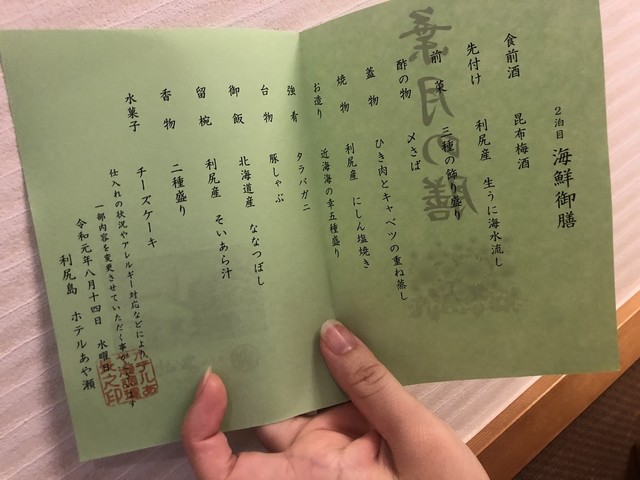 2泊目 海鮮御膳
食前酒 昆布梅酒
先付け 利尻産 生うに海水流し
前菜 三種の飾り盛り
酢の物 〆さば
蓋物 ひき肉とキャベツの重ね蒸し
焼物 利尻産 にしん塩焼き
お造り 近海海の幸五種盛り
強肴 タラバガニ
台物 豚しゃぶ
御飯 北海道産 ななつぼし
留椀 利尻産 そいあら汁
香物 二種盛り
水菓子 チーズケーキ
仕入れの状況やアレルギー対応などにより
一部内容を変更させていただく事が
令和元年八月十四日 水曜日
利尻島 ホテルあや瀬
葉月の膳